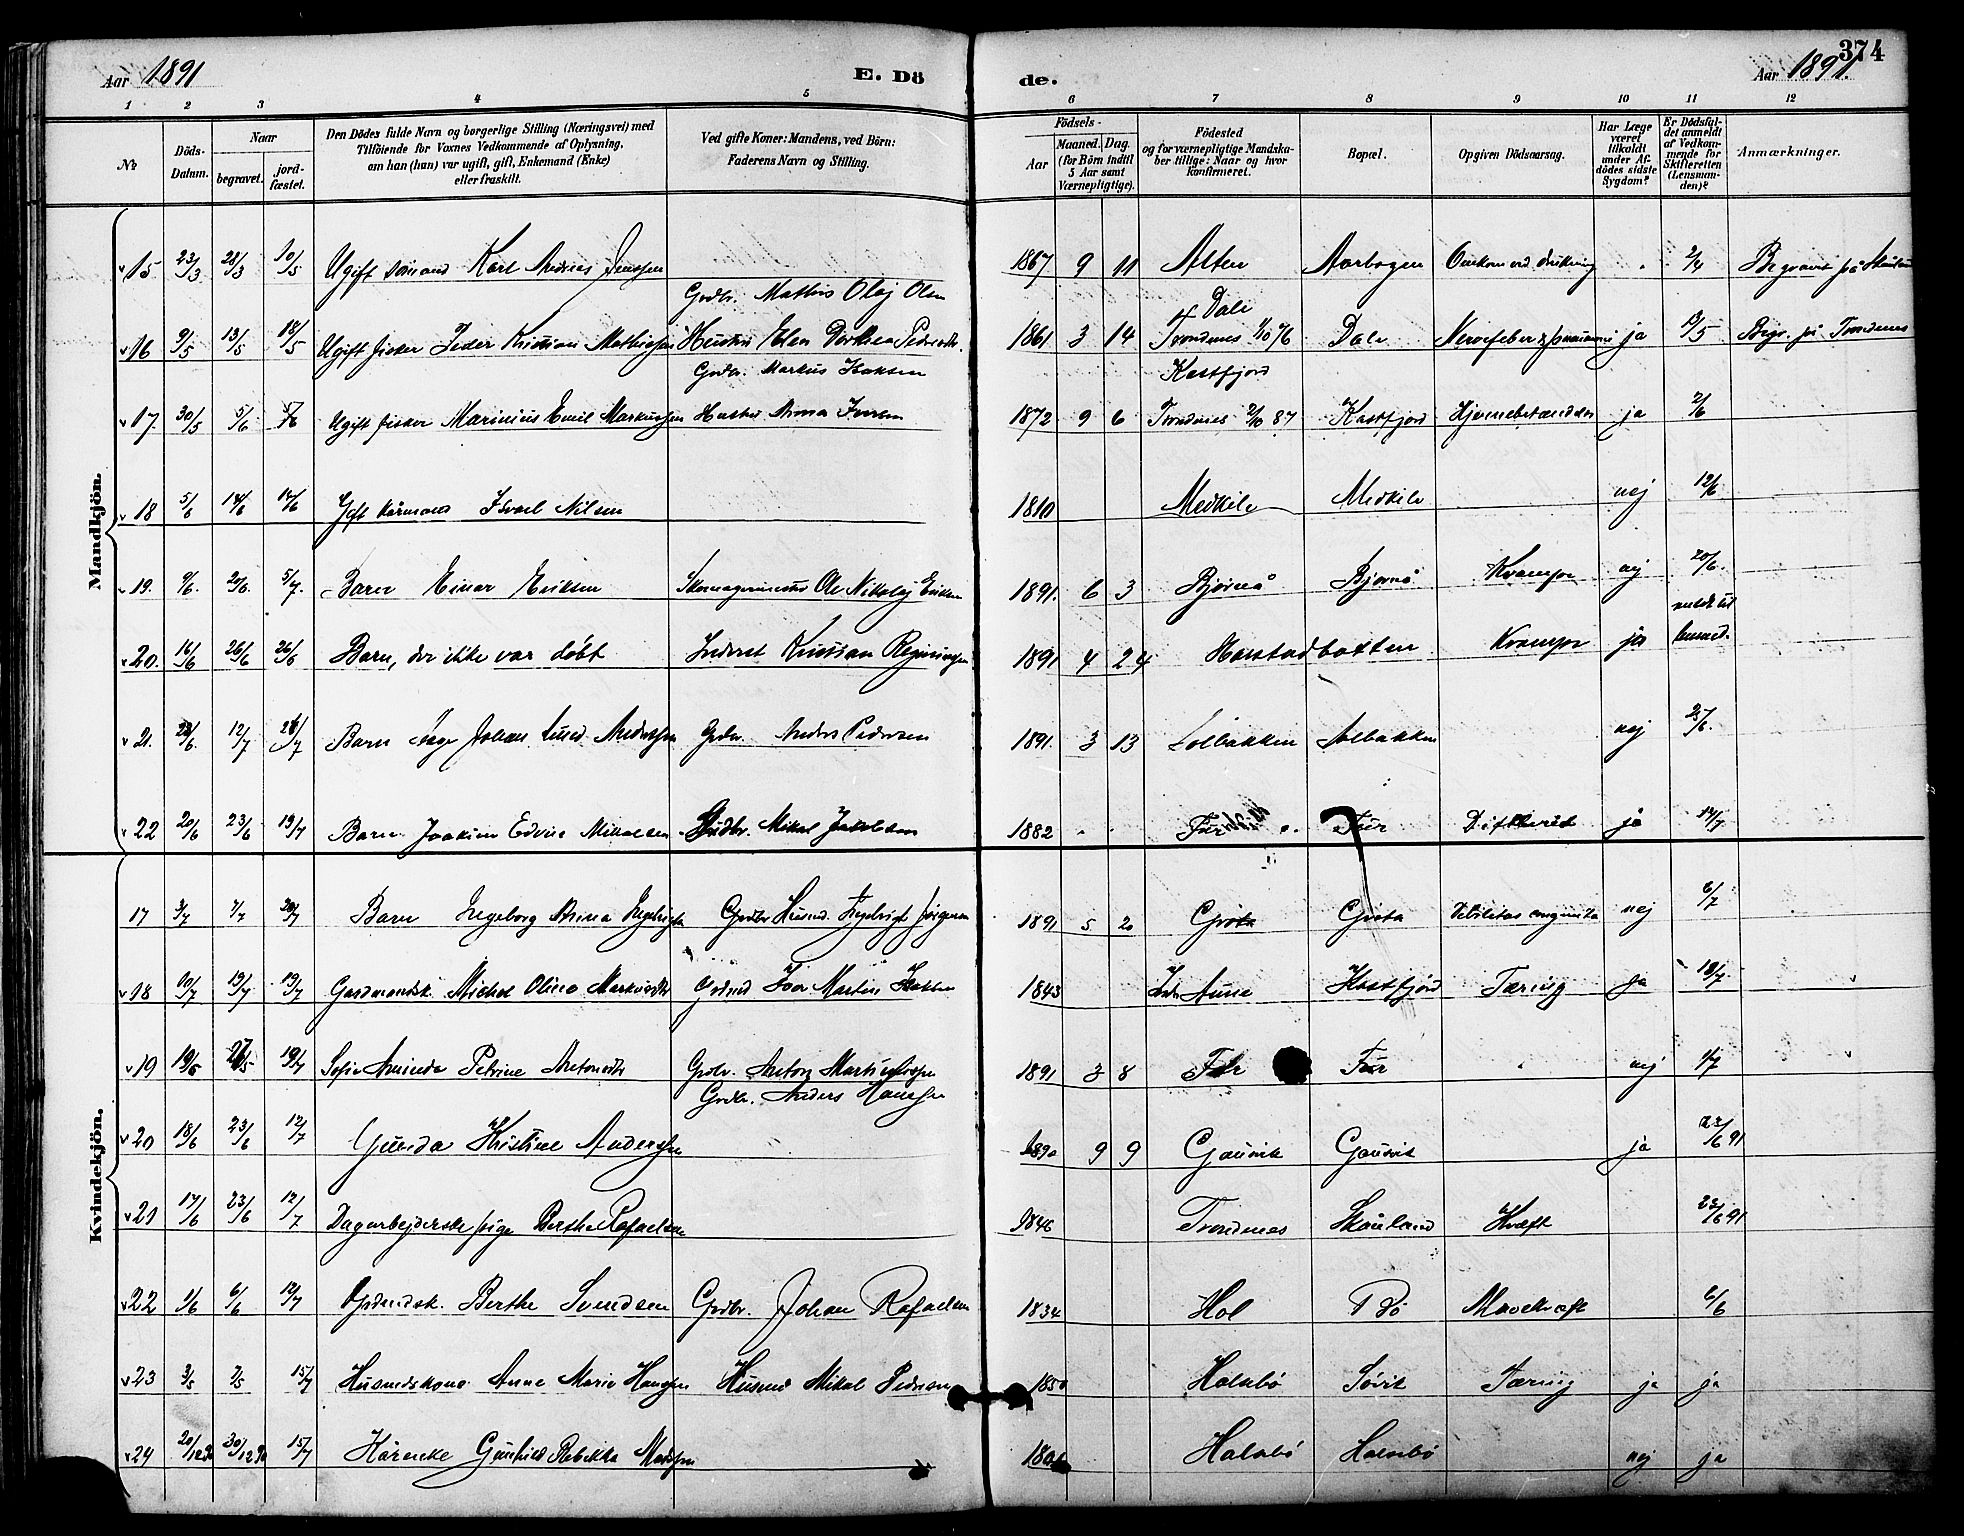 374
Aar 1891 E. Dö de. Aar 1891.
1 2 3 4 5 6 7 8 9 10 11 12
No. Döds-Datum. Naar begravet. jord-fæstet. Den Dödes fulde Navn og borgerlige Stilling (Næringsvei) med Tilföiende för Voxnes Vedkommende af Oplysning, om han (hun) var ugift, gift, Enkemand (Enke) eller fraskilt. Ved gifte Koner: Mandens, ved Börn: Faderens Navn og Stilling. Födsels- Aar Maaned. Dag. (for Börn indtil 5 Aar samt Værnepligtige). Födested og for værnepligtige Mandskaber tillige: Naar og hvor konfirmeret. Bopæl. Opgiven Dödsaarsag. Har Læge været tilkaldt under Afdödes sidste Sygdom? Er Dödsfaldet anmeldt af Vedkommende for Skifteretten (Lensmanden)? Anmærkninger.
Mandkjön.
15 23/3 28/3 10/5 Ugift sömand Karl Andreas Jenssen 1867 9 11 Alten Aarbogen Omkom ved drukning 2/4 Begravet på
Grdbr. Mathis Olaj Olsen Dale
16 9/5 13/5 18/5 Ugift fisker Peder Kristian Mathiassen Hustru Elen Dorthea Pedersdtr. 1861 3 14 Trondenes 1/10 76 Dale Nervefeber ja 13/5 Begr. på Trondenes
Grdbr. Markus Isaksen Kastfjord
17. 30/5 5/6 5/6 Ugift fisker Marinius Emil Markussen Hustru Anna Iversen 1872 9 6 Trondenes 2/10 87 Kastfjord Hjernebetændelse ja 2/6
18 5/6 14/6 14/6 Gift kårmand Israel Nilsen 1810 Medkile Medkile nej 12/6
19. 9/6. 20/6. 5/7. Barn Einar Eriksen Skomagermester Ole Nikolaj Eriksen 1891. 6 3 Bjørnå Bjørnå Krampe nej 20/6.
meldt til
20. 16/6 26/6 26/6 Barn, der ikke var døbt Inderst Kristian 1891 4 24 Harstadbotten Krampe ja lensmd.
21. 22/6. 12/7 26/7 Barn Aage Johan Andersen Grdbr. Anders Pedersen 1891. 3 13 Solbakken Solbakken nej 25/6.
22 20/6 23/6 19/7 Barn Joakim Edvin Mikalsen Grdbr. Mikal Jakobsen 1882 Fur Fur Difterit ja 14/7
Kvindekjön.
17 3/7 7/7 20/7 Barn Ingeborg Anna Grdbr Husmd. Ingebrigt Jørgensen 1891 5 2 Grøta Grøta Debilitas congenita nej 6/7
18 10/7 19/7 19/7 Gardmandsk. Michol Oline Markusdtr Grdmd Iver Martin 1843 Aune Kastfjord Tæring Ja 18/7
19 19/5 27/5 19/7 Sofie Aminda Petrine Antonsdtr Grdbr. Anton Martin 1891 3 8 Fur Fur nej 1/7
Grdbr. Anders Hansen
20 18/6 23/6 12/7 Gunda Kristine Andersen 1890 9 9 Gausvik Gausvik ja 23/6 91
21 17/6 23/6 12/7 Dagarbejderske pige Berthe Rafaelsen 1846 Trondenes Skånland Kræft 23/6 91
22 1/6 6/6 12/7 Berthe Svendsen Grdbr. Johan Rafaelsen 1834 Hol Bø Mavekræft 6/6
23 3/5 7/5 15/7 Husmdskone Anne Marie Hansen Husmd Mikal Pedersen 1850 Halsebø Søvik Tæring ja ja
24 20/12 90 30/12 90 15/7 Kårenke Gunhild Rebekka Madsen Halsebø Halsebø nej ja